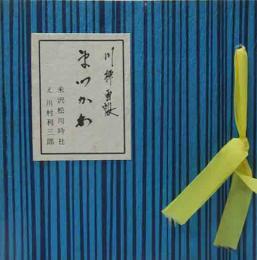 川柳画帳
まつかわ
米沢松川吟社
え 川村利三郎